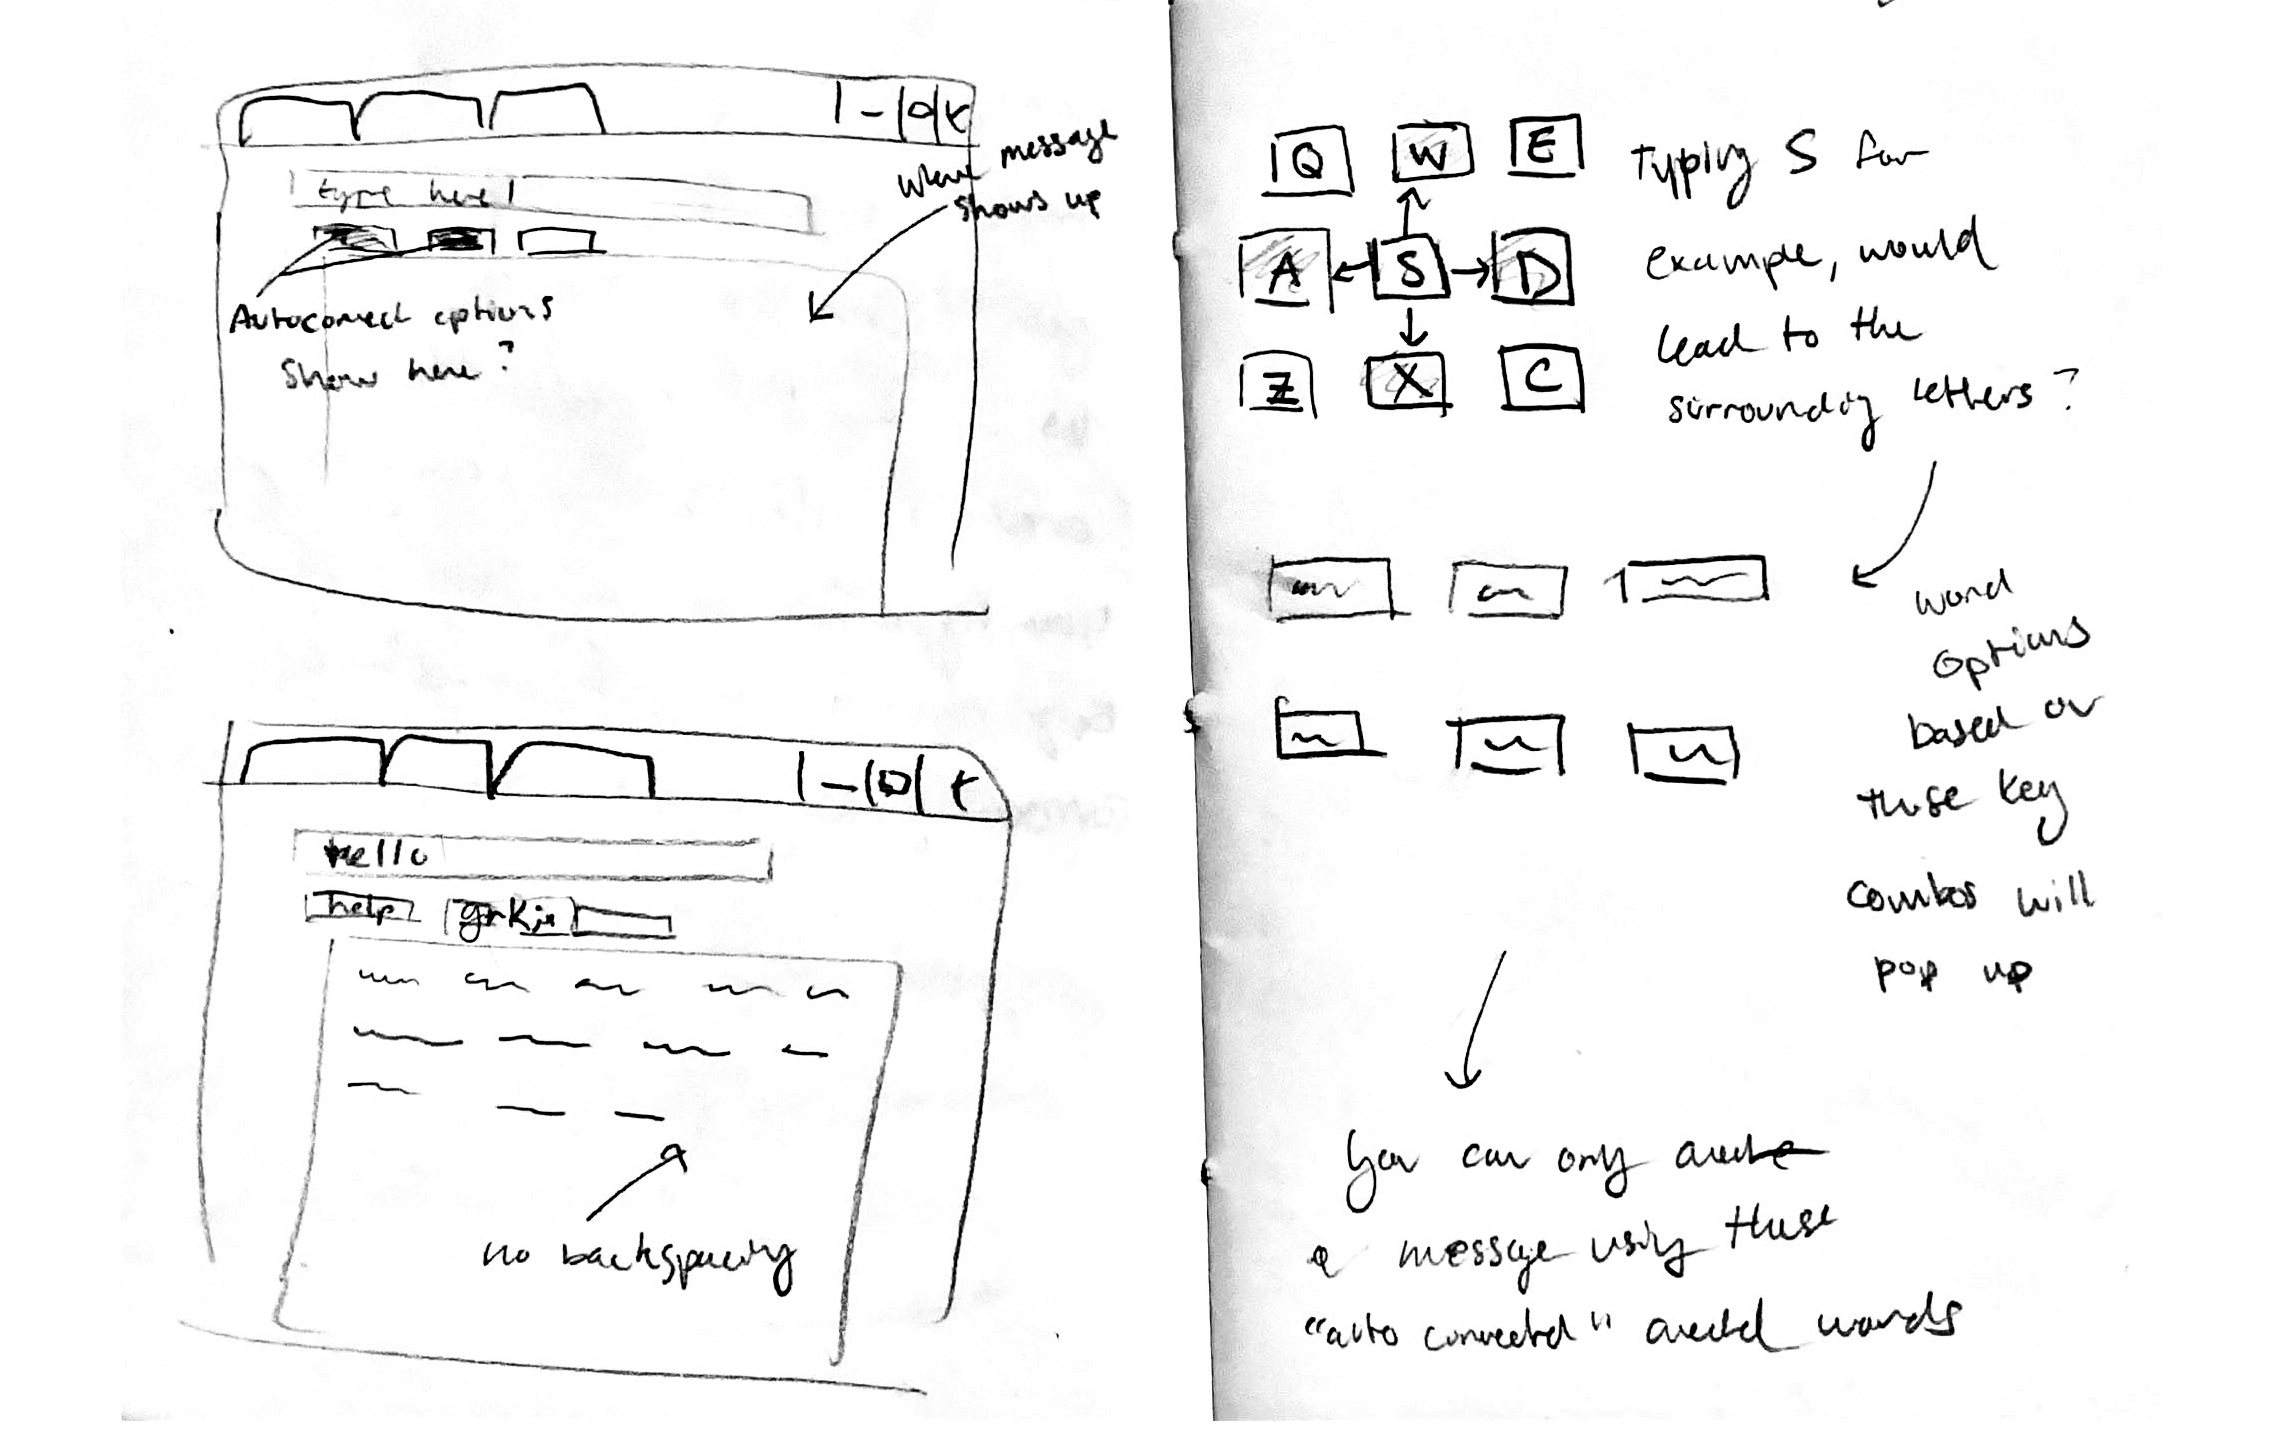 type here
where message
shows up
Autocorrect options
show here?
Hello
help grkjn
no backspacing
Q W E
A S D
Z X C
Typing S for
example, would
lead to the
surrounding letters?
word
options
based on
those key
combos will
pop up
You can only create
a message using these
"auto corrected" created words